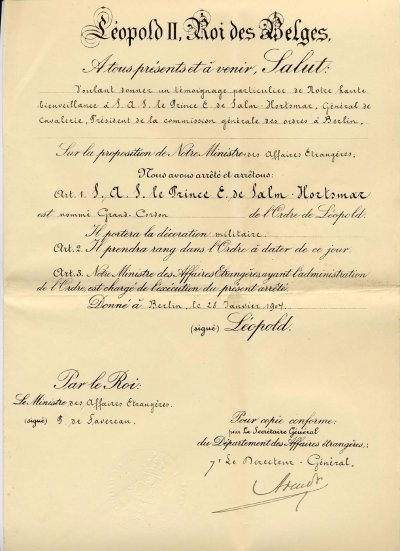 Léopold II, Roi des Belges,
A tous présents et à venir, Salut:
Voulant donner un témoignage particulier de Notre haute
bienveillance à S. A. S. le Prince E. de Salm-Hortsmar, Général de
Cavalerie, Président de la commission générale des ordres à Berlin,
Sur la proposition de Notre Ministre des Affaires Etrangères,
Nous avons arrêté et arrêtons:
Art. 1. S. A. S. le Prince E. de Salm-Hortsmar
est nommé Grand-Cordon de l'Ordre de Léopold.
Il portera la décoration militaire.
Art. 2. Il prendra rang dans l'Ordre à dater de ce jour.
Art. 3. Notre Ministre des Affaires Etrangères ayant l'administration
de l'Ordre, est chargé de l'exécution du présent arrêté.
Donné à Berlin, le 28 Janvier 1904.
(signé) Léopold.
Par le Roi:
Le Ministre des Affaires Etrangères.
(signé) P. de Favereau.
Pour copie conforme:
pour Le Secrétaire Général
du Département des Affaires étrangères,:
Le Directeur-Général,